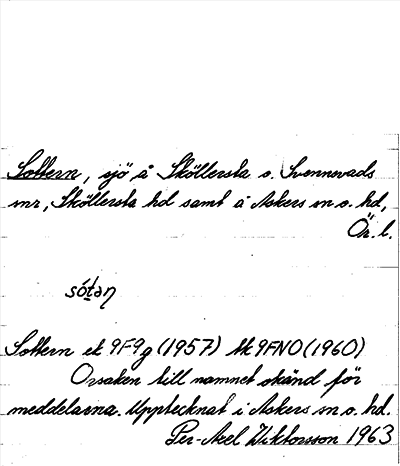 Sottern, sjö å Sköllersta o. Svennevads
snr, Sköllersta hd samt å Askers sn o. hd,
Ör. l.
sót̲ən
Sottern ek 9F9g (1957) tk 9FNO (1960)
Orsaken till namnet okänd för
meddelarna. Upptecknat i Askers sn o. hd.
Per-Axel Wiktorsson 1963